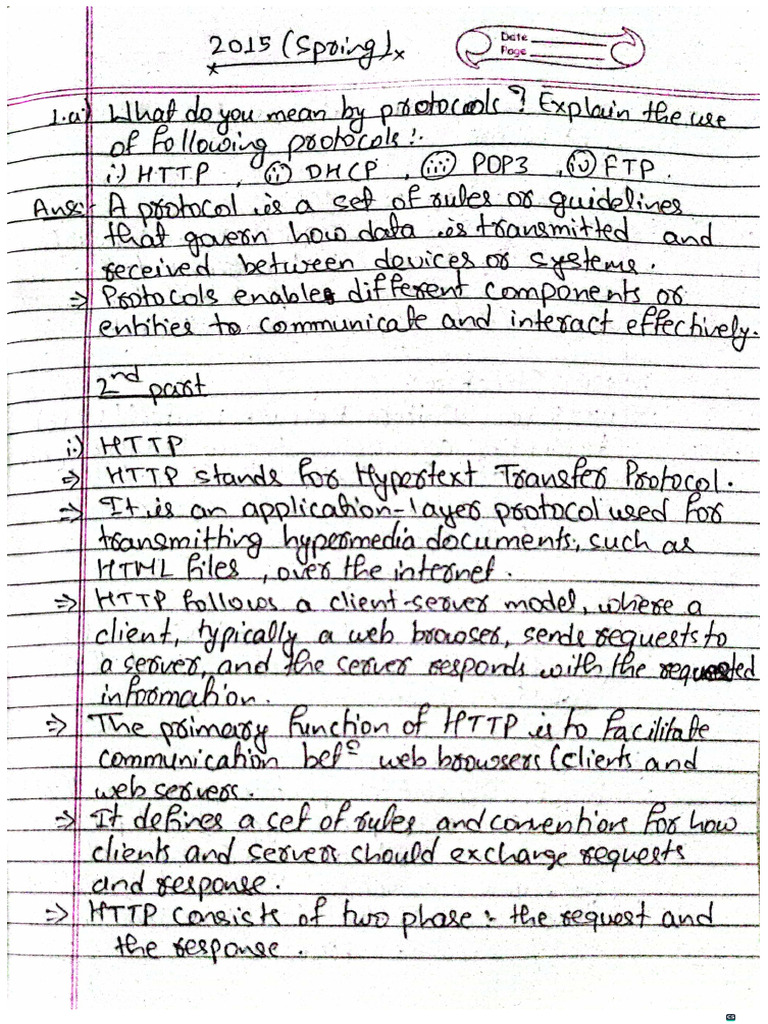 2015 (Spring)
Date
Page
1.a) What do you mean by protocols? Explain the use
of following protocols:.
i.) HTTP , (ii) DHCP , (iii) POP3 , (iv) FTP .
Ans:- A protocol is a set of rules or guidelines
that govern how data is transmitted and
received between devices or systems.
⇒ Protocols enables different components or
entities to communicate and interact effectively.
2nd part
i.) HTTP
⇒ HTTP stands for Hypertext Transfer Protocol.
⇒ It is an application-layer protocol used for
transmitting hypermedia documents, such as
HTML files , over the internet .
⇒ HTTP follows a client-server model, where a
client, typically a web browser, sends requests to
a server, and the server responds with the requested
information.
⇒ The primary function of HTTP is to facilitate
communication betn web browsers (clients and
web servers.
⇒ It defines a set of rules and conventions for how
clients and servers should exchange requests
and response.
⇒ HTTP consists of two phase : the request and
the response .
CS